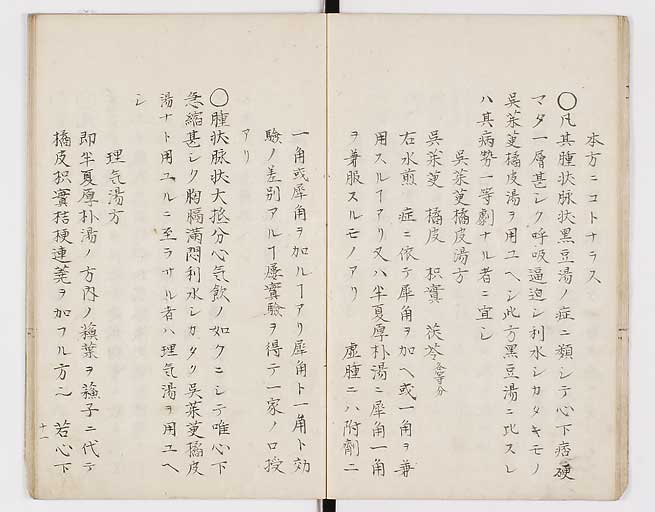 本方ニコトナラス
〇凡其腫状脉状黒豆湯ノ症ニ類シテ心下痞硬
マダ一層甚シク呼吸逼迫シ利水シカタキモノ
呉茱萸橘皮湯ヲ用ユヘシ此方黒豆湯ニ比スレ
ハ其病勢一等劇ナル者ニ宜シ
呉茱萸橘皮湯方
呉茱萸 橘皮 枳實 茯苓各等分
右水煎 症ニ依テ犀角ヲ加ヘ或一角ヲ兼
用スルヿアリ又ハ半夏厚朴湯ニ犀角一角
ヲ兼服スルモノアリ 虚腫ニハ附劑ニ
一角或犀角ヲ加ルヿアリ犀角ト一角ト効
験ノ差別アルヿ屡實驗ヲ得テ一家ノ口授
アリ
〇腫状脉状大抵分心気飲ノ如クニシテ唯心下
急縮甚シク胸膈満悶利水シカタク呉茱萸橘皮
湯ナト用ユルニ至ラサル者ハ理気湯ヲ用ユヘ
シ
理気湯方
即半夏厚朴湯ノ方内ノ蘓葉ヲ蘓子ニ代テ
橘皮枳實桔梗連莞ヲ加フル方也 若心下
十一